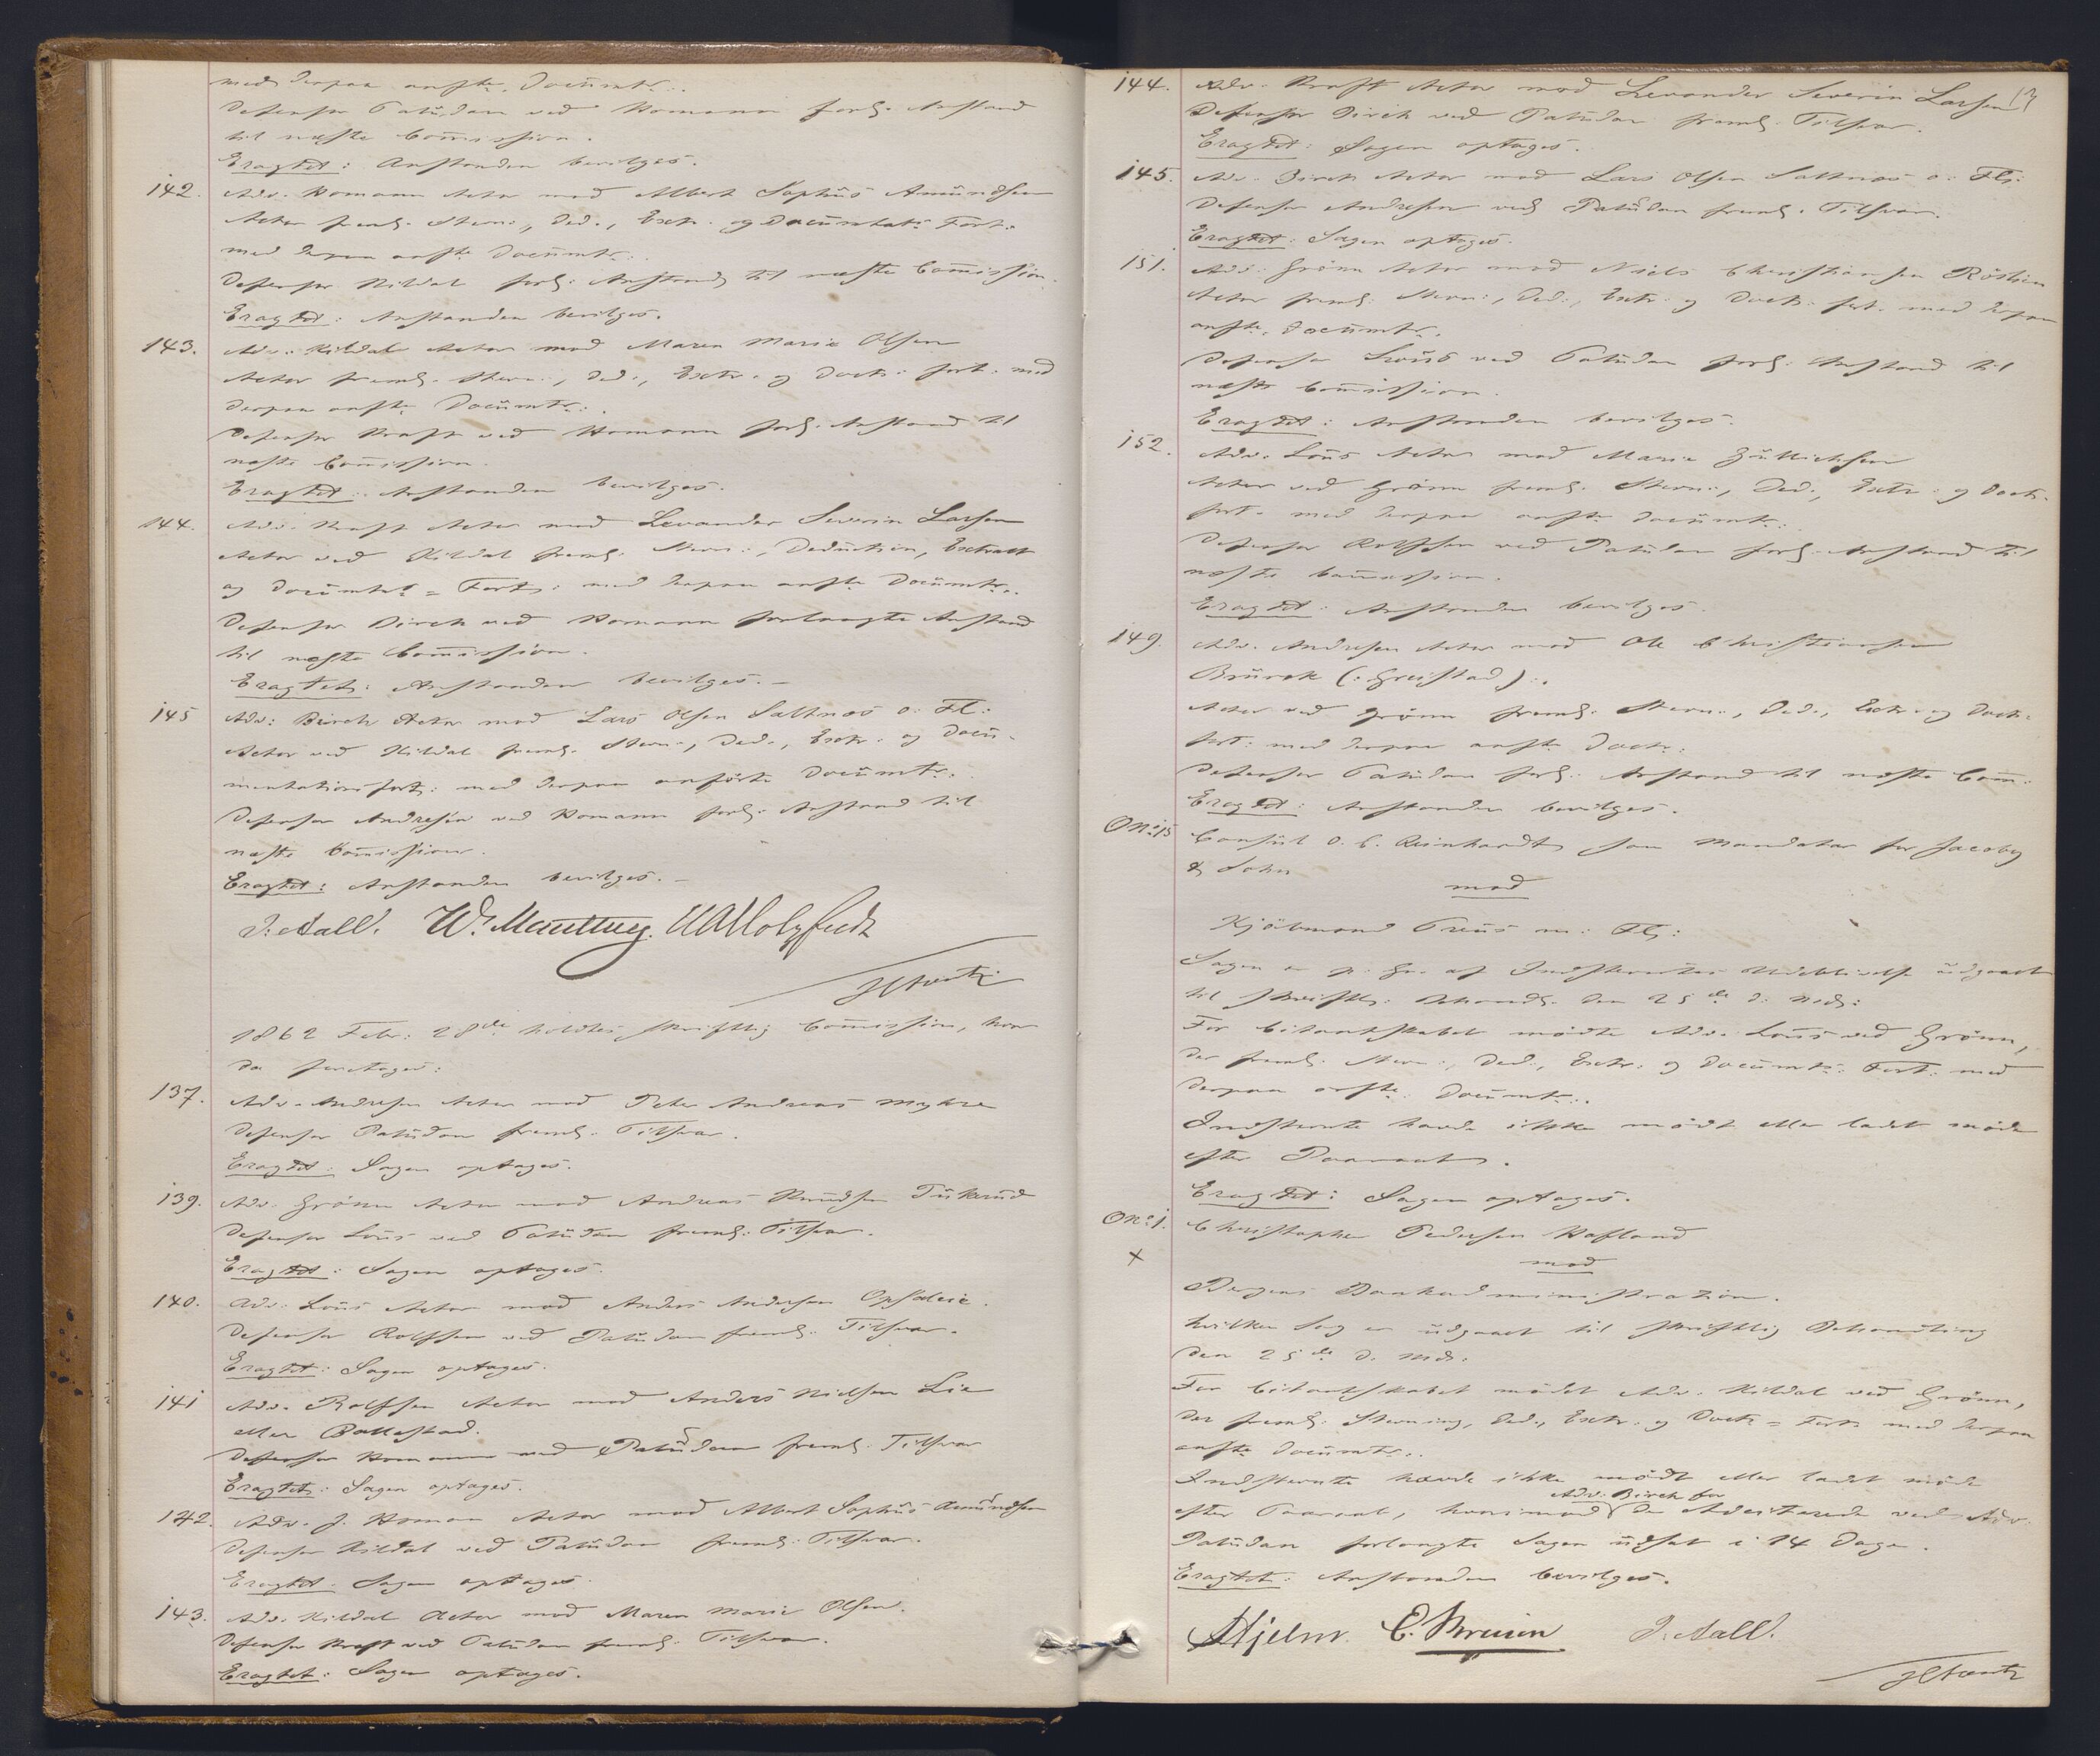 med derpaa anfte. Documtr:.
Defensor Paludan ved Homann forl. Anstand
til næste Commission.
Eragtet: Anstanden bevilges.
142. Adv. Homann Actor mod Albert Sophus Amundsen
Actor freml. Stevn:, Ded., Extr. og Documtat: Fort:
med derpaa anfte Documtr:.
Defensor Kildal forl: Anstand til næste Commission.
Eragtet: Anstanden bevilges.
143. Adv. Kildal Actor mod Maren Marie Olsen
Actor freml. Stevn:, Ded., Extr. og Doct: fort: med
derpaa anfte Documtr:.
Defensor Kraft ved Homann forl. Anstand til
næste Commission.
Eragtet: Anstanden bevilges.
144. Adv. Kraft Actor mod Levander Severin Larsen
Actor ved Kildal freml: Stevn:, Deduction, Extract
og Documt: = Fort: med derpaa anfte Documtr:.
Defensor Birch ved Homann forlangte Anstand
til næste Commission.
Eragtet: Anstanden bevilges. –
145 Adv: Birch Actor mod Lars Olsen Saltnæs o: Fl:
Actor ved Kildal freml. Stevn:, Ded., Extr. og Docu-
mentationsfort: med derpaa anførte Documtr.
Defensor Andresen ved Homann forl: Anstand til
næste Commission.
Eragtet: Anstanden bevilges. –
J. Aall. W. Manthey. UAMotzfeldt
1862 Febr: 28de holdtes skriftlig Commission, hvor
da foretages:
137. Adv. Andresen Actor mod Peter Andreas Myhre
Defensor Paludan freml. Tilsvar.
Eragtet: Sagen optages.
139. Adv. Grönn Actor mod Andreas Knudsen
Defensor Lous ved Paludan freml: Tilsvar.
Eragtet: Sagen optages.
140. Adv: Lous Actor mod Anders Andersen
Defensor Rolfsen ved Paludan freml: Tilsvar.
Eragtet: Sagen optages.
141 Adv. Rolfsen Actor mod Anders Nielsen Lie
eller Ballestad.
Defensor Homann ved Paludan freml. Tilsvar
Eragtet: Sagen optages.
142. Adv. J. Homann Actor mod Albert Sophus Amundsen
Defensor Kildal ved Paludan freml: Tilsvar.
Eragtet: Sagen optages.
143. Adv. Kildal Actor mod Maren Marie Olsen.
Defensor Kraft ved Paludan freml: Tilsvar.
Eragtet: Sagen optages.
144. Adv. Kraft Actor mod Levander Severin Larsen
Defensor Birch ved Paludan freml. Tilsvar.
Eragtet: Sagen optages.
145. Adv. Birch Actor mod Lars Olsen Saltnæs o: Fl:
Defensor Andresen ved Paludan freml. Tilsvar.
Eragtet: Sagen optages.
151. Adv: Grönn Actor mod Niels Christiansen
Actor freml: Stevn:, Ded., Extr. og Doct: fort. med derpaa
anfte. Documtr.
Defensor Lous ved Paludan forl: Anstand til
næste Commission.
Eragtet: Anstanden bevilges.
152. Adv. Lous Actor mod Marie
Actor ved Grönn freml. Stevn:, Ded., Extr. og Doct.
fort. med derpaa anfte Documtr:
Defensor Rolfsen ved Paludan forl. Anstand til
næste Commission.
Eragtet: Anstanden bevilges.
149. Adv. Andresen Actor mod Ole Christiansen
Actor ved Grönn freml. Stevn:, Ded., Extr: og Doct:
fort: med derpaa anfte Doctr:
Defensor Paludan forl: Anstand til næste Comm:
Eragtet: Anstanden bevilges.
O No: 15 Consul O. C. Reinhardt som Mandatar for Jacoby
& Sohn
mod
Kjöbmand Preus m: Fl:
Sagen er p. Gr. af Indstevntes Udeblivelse udgaaet
til skriftl: Behandl. den 25de d: Md:
For Citantskabet mödte Adv. Lous ved Grönn,
der freml. Stevn:, Ded., Extr. og Documts: Fort: med
derpaa anfte: Documtr:.
Indstevnte havde ikke mödt eller ladet möde
efter Paaraab.
Eragtet: Sagen optages.
O No: 1. Christopher Pedersen Hafland
×
mod
Bergens Bankadministration.
hvilken Sag er udgaaet til skriftlig Behandling
den 25de d. Md:
For Citantskabet mödte Adv. Kildal ved Grönn,
der freml: Stevning, Ded., Extr. og Doct: = Fort: med derpaa
anfte Documtr:.
Indstevnte havde ikke mödt eller ladet möde
Adv. Birch for
efter Paaraab, hvorimod de Adciterede ved Adv.
Paludan forlangte Sagen udsat i 14 Dage.
Eragtet: Anstanden bevilges.
Hjelm. E. Bruun J. Aall.